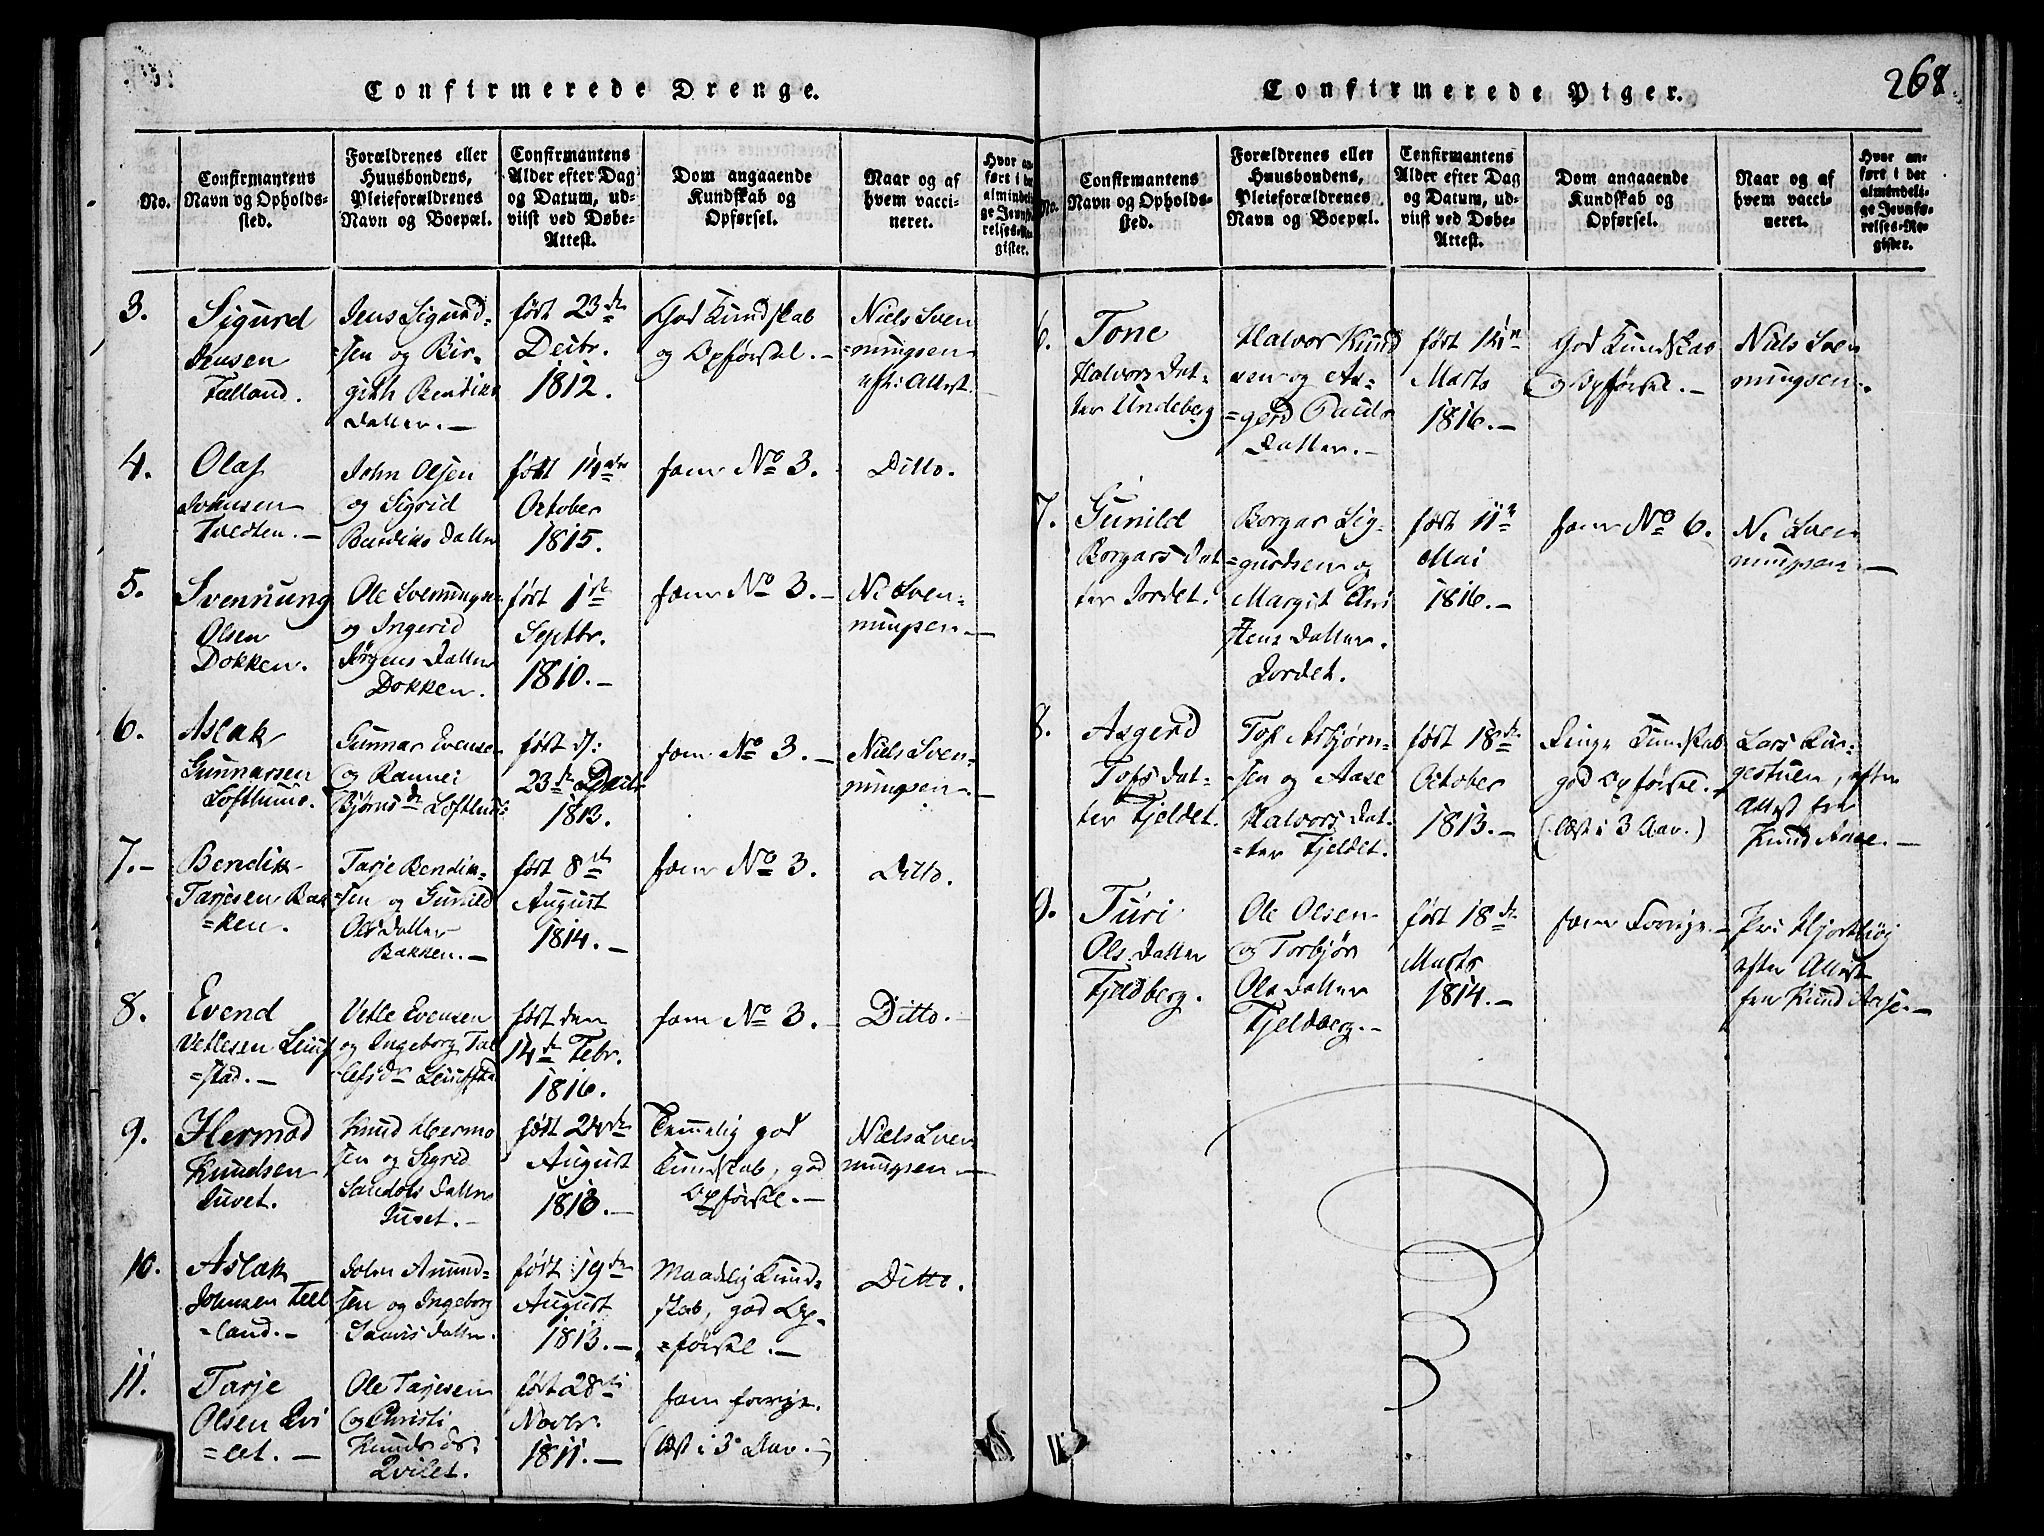 Confirmerede Drenge.
No.
Confirmantens
Navn og Opholds-
sted.
Forældrenes eller
Huusbondens,
Pleieforældrenes
Navn og Boepæl.
Confirmantens
Alder efter Dag
og Datum, ud-
viist ved Døbe-
Attest.
Dom angaaende
Kundskab og
Opførsel.
Naar og af
hvem vacci-
neret.
Hvor an-
ført i det
almindeli-
ge Jevnfø-
relses-Re-
gister.
3.
Sigurd
Jensen
Jens Sigurd-
=sen og Bir-
gith Bendiks
Datter.
født 23de
Decbr.
1812.
God Kundskab
og Opførsel.
Niels Sven
=nungsen
eft: Attest.
4.
Olaf
Johnsen
Tvedten.
John Olsen
og Sigrid
Bendiks Datter
født 14de
October
1815.
som No 3.
Ditto.
5.
Svennung
Olsen
Dokken.
Ole Svennungs
og Ingerid
Jørgens Datter
Dokken.
født 1ste
Septbr.
1810.
som No 3.
N: Sven-
nungsen
6.
Aslak
Gunnarsen
Lofthuus.
Gunnar Evensen
og Rannei
Bjørns dr Lofthuus
født d:
23de Decbr
1813.
som No 3.
Niels Sven-
nungsen
7.
Bendik
Tarjesen Bak
=ken.
Tarje Bendik-
=sen og Gunild
Ols Datter
Bakken.
født 8de
August
1814.
som No 3.
Ditto.
8.
Evend
Vetlesen
=stad.
Vetle Evensen
og Ingeborg Tal
lefsdr
født den
14de Febr.
1816.
som No 3.
Ditto.
9.
Hermod
Knudsen
Juvet.
Knud Hermo
sen og Sigrid
Datter
Juvet.
født 24de
August
1813.
Temmelig god
Kundskab, god
Opførsel.
Niels Sven
nungsen
10.
Aslak
Johnsen Fell
=land.
John Amund-
sen og Ingeborg
Datter.
født 19de
August
1813.
Maadelig Kund-
skab, god Op-
=førsel.
Ditto.
11.
Tarje
Olsen Qvi
=let.
Ole Tarjesen
og Christi
Knuds dr
Qvilet.
født 28de
Novbr.
1811.
som forrige.
(læst i 3 Aar.)
Confirmerede Piger.
268
No.
Confirmantens
Navn og Opholds-
sted.
Forældrenes eller
Huusbondens,
Pleieforældrenes
Navn og Boepæl.
Confirmantens
Alder efter Dag
og Datum, ud-
viist ved Døbe-
Attest.
Dom angaaende
Kundskab og
Opførsel.
Naar og af
hvem vacci-
neret.
Hvor an-
ført i det
almindeli-
ge Jevnfø-
relses-Re-
gister.
6.
Tone
Halvors Dat-
ter Undeberg
Halvor Knud
sen og As-
=gerd Pauls
Datter.
født
Marts
1816.
God Kundskab
og Opførsel.
Niels Sven
nungsen.
7.
Gunild
Borgars Dat
ter Jordet.
Borgar Sig-
=gurdsen og
Margit Chri
stens Datter.
Jordet.
født 11te
Mai
1816.
som No 6.
N: Sven
nungsen
8.
Asgerd
Tofs Dat-
ter Fjeldet.
Tof Asbjørn-
=sen og Aase
Halvors Dat-
=ter Fjeldet.
født 18de
October
1813.
Ringe Kundskab
god Opførsel.
(læst i 3 Aar.)
Lars
gestuen, efter
Attest fra
Knud Aase.
9.
Turi
Ols Datter
Fjeldberg.
Ole Olsen
og Torbjør
Ols Datter
Fjeldberg.
født 18de
Marts
1814.
som Forrige.
efter Attest
fra Knud Aase.